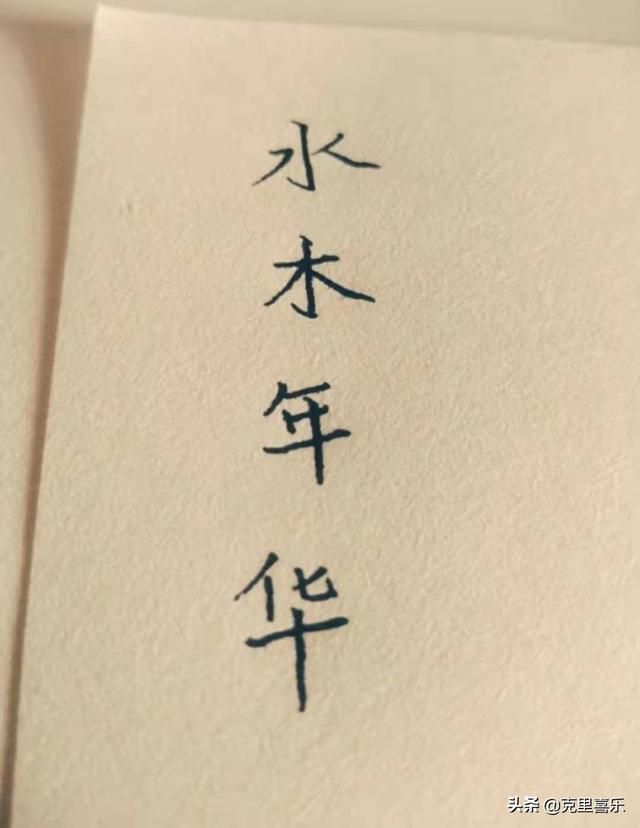 水木年华
头条 @克里喜乐